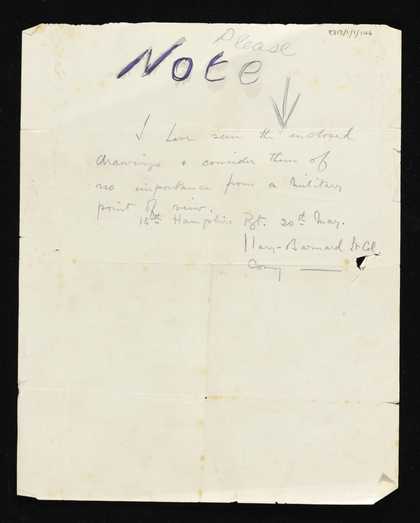 Please
Note
I have seen the enclosed
drawings & consider them of
no importance from a military
point of view.
15th Hampshire Rgt. 20th May.
Barnard Lt Col
Comg